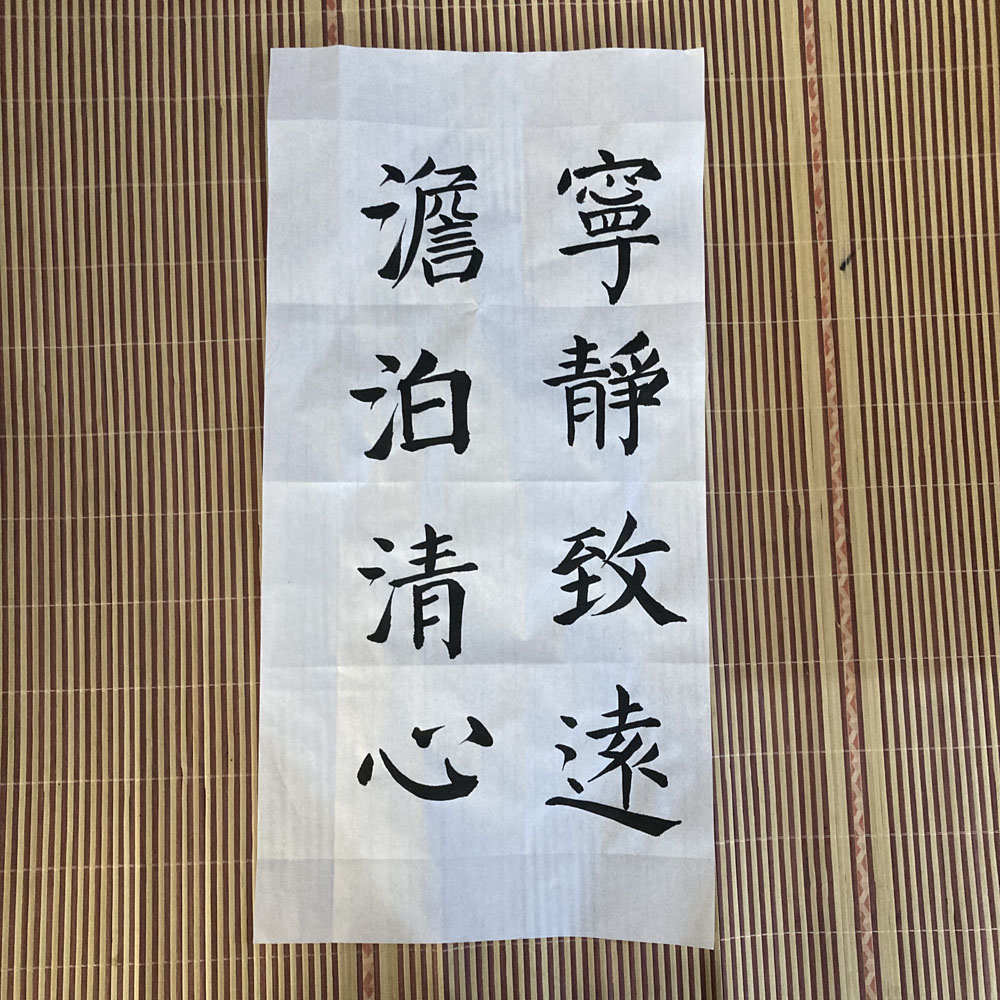 寧靜致遠
澹泊清心